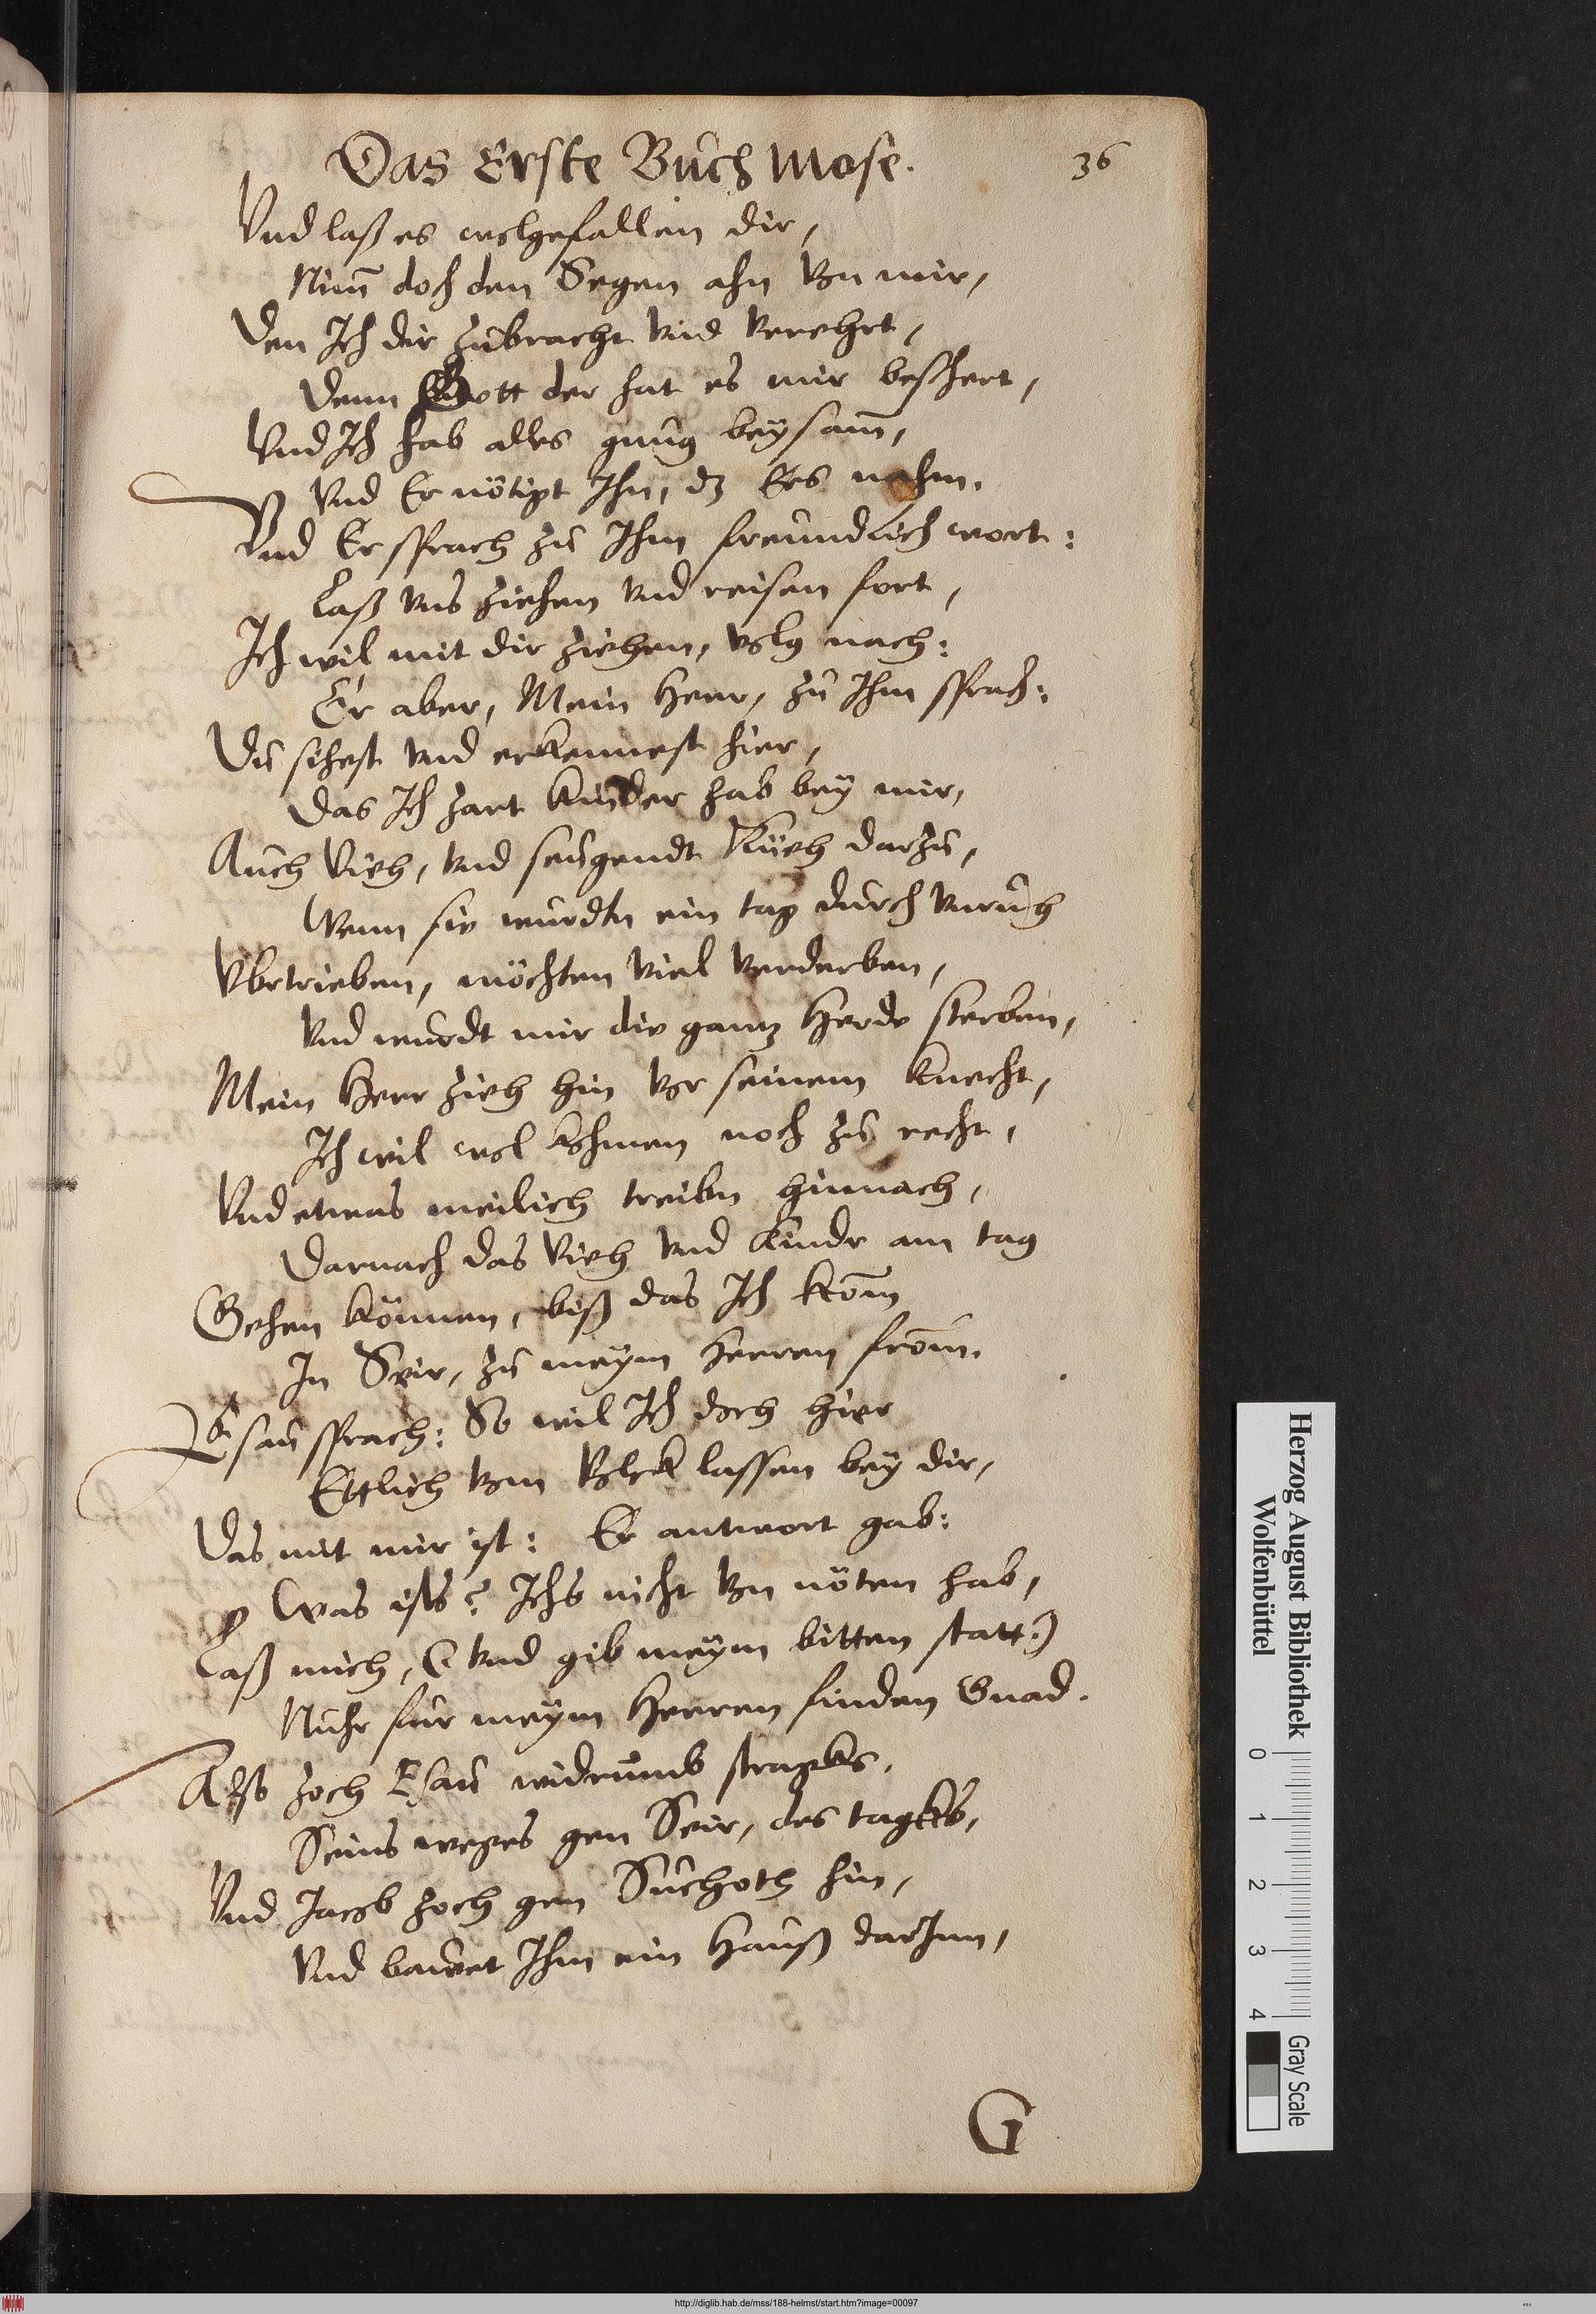 Das Erste Buch Mose. 36
Vnd laß es wolgefallen dir,
Nim̄ doch den Segen ahn von mir,
Den Ich dir zubracht vnd verehrt,
Denn Gott der hat es mir beschert,
Vnd Ich hab alles gnug beysam̄,
Vnd Er nötigt Ihn, dz Ers nahm.
Vnd Er sprach zu Ihm freundlich wort:
Laß vns ziehen vnd reisen fort,
Ich wil mit dir ziehen, volg nach:
Er aber, Mein Herr, zu Ihm sprach:
Du sihest vnd erkennest hier,
Das Ich zart Kinder hab bey mir,
Auch Vieh, vnd seugendt Küeh darzu,
Wenn sie wurdtn ein tag durch vnruh
Vbrtrieben, möchten viel verderben,
Vnd wurdt mir die gantz Herde sterben,
Mein Herr zieh hin vor seinem Knecht,
Ich wil wol kohmen noch zu recht,
Vnd etwas meilich treibn hinnach,
Darnach das Vieh vnd Kindr am tag
Gehen können, biß das Ich kom̄
In Seir, zu meym Herren from̄.
Esau sprach: So wil Ich doch hier
Ettlich vom Volck lassen bey dir,
Das mit mir ist: Er antwort gab:
Was ists? Ichs nicht von nöten hab,
Laß mich, (vnd gib meym bitten statt:)
Nuhr fur meym Herren finden Gnad.
Also zoch Esau widrumb stragks,
Seins weges gen Seir, des tagks,
Vnd Jacob zoch gen Suchoth hin,
Vnd bawet Ihm ein Hauß darInn,
G
Herzog August Bibliothek
Wolfenbüttel
0 1 2 3 4
Gray Scale
http://diglib.hab.de/mss/188-helmst/start.htm?image=00097